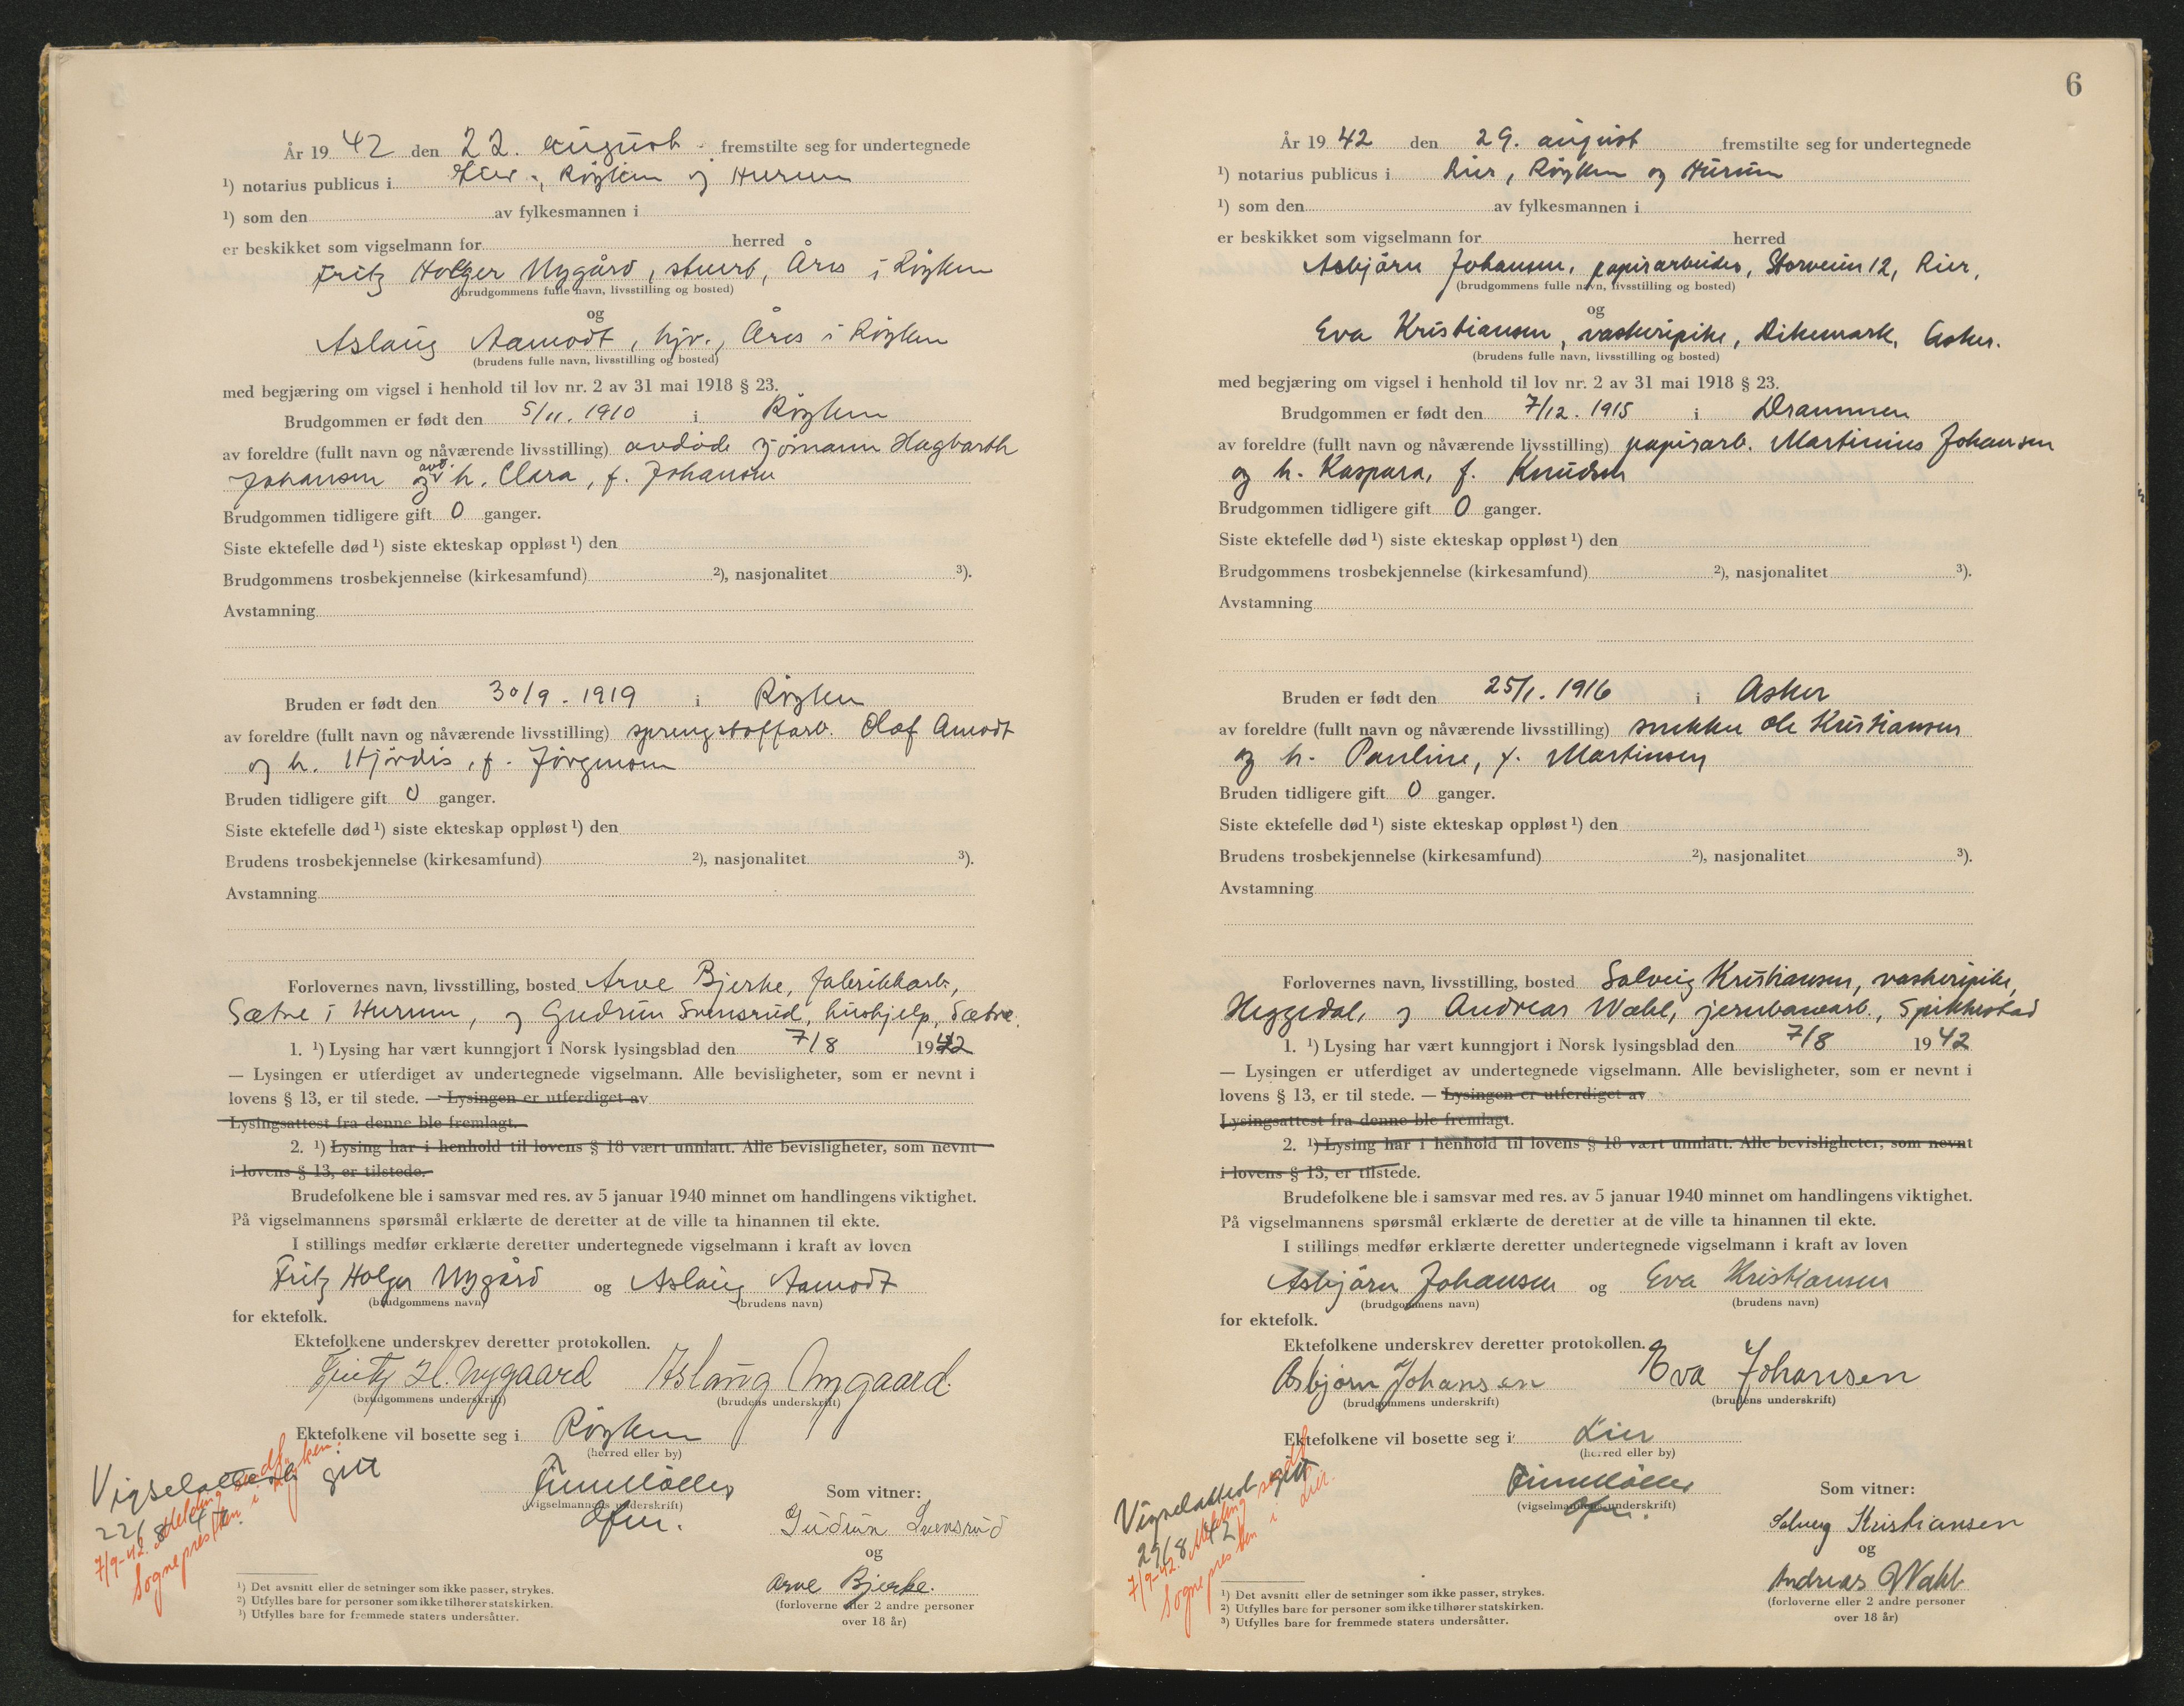 År 19 42 den 22. august fremstilte seg for undertegnede
¹) notarius publicus i Lier, Røyken og Hurum
¹) som den av fylkesmannen i
er beskikket som vigselmann for herred
Fritz Holger Nygård, stuert, Åros i Røyken
(brudgommens fulle navn, livsstilling og bosted)
og
Aslaug Aamodt, hjv., Åros i Røyken
(brudens fulle navn, livsstilling og bosted)
med begjæring om vigsel i henhold til lov nr. 2 av 31 mai 1918 § 23.
Brudgommen er født den 5/11. 1910 i Røyken
av foreldre (fullt navn og nåværende livsstilling) avdøde sjømann Hagbarth
Johansen og avd. h. Clara, f. Johansen
Brudgommen tidligere gift 0 ganger.
Siste ektefelle død ¹) siste ekteskap oppløst ¹) den
Brudgommens trosbekjennelse (kirkesamfund) ²), nasjonalitet ³).
Avstamning
Bruden er født den 30/9. 1919 i Røyken
av foreldre (fullt navn og nåværende livsstilling) sprengstoffarb. Olaf Amodt
og h. Hjørdis, f. Jørgensen
Bruden tidligere gift 0 ganger.
Siste ektefelle død ¹) siste ekteskap oppløst ¹) den
Brudens trosbekjennelse (kirkesamfund) ²), nasjonalitet ³).
Avstamning
Forlovernes navn, livsstilling, bosted Arve Bjerke, fabrikkarb.,
Sætre i Hurum, og Gudrun Svensrud, hushjelp, Sætre.
1. ¹) Lysing har vært kunngjort i Norsk lysingsblad den 7/8 1942
— Lysingen er utferdiget av undertegnede vigselmann. Alle bevisligheter, som er nevnt i
lovens § 13, er til stede. — Lysingen er utferdiget av
Lysingsattest fra denne ble fremlagt.
2. ¹) Lysing har i henhold til lovens § 18 vært unnlatt. Alle bevisligheter, som nevnt
i lovens § 13, er tilstede.
Brudefolkene ble i samsvar med res. av 5 januar 1940 minnet om handlingens viktighet.
På vigselmannens spørsmål erklærte de deretter at de ville ta hinannen til ekte.
I stillings medfør erklærte deretter undertegnede vigselmann i kraft av loven
Fritz Holger Nygård og Aslaug Aamodt
(brudgommens navn) (brudens navn)
for ektefolk.
Ektefolkene underskrev deretter protokollen.
Fritz H. Nygaard Aslaug Nygaard.
(brudgommens underskrift) (brudens underskrift)
Ektefolkene vil bosette seg i Røyken
(herred eller by)
Vigselattest gitt
22/8 42
7/9-42. Melding sendt
Sognepresten i Røyken.
(vigselmannens underskrift)
Som vitner:
Gudrun Svensrud
og
Arve Bjerke.
(forloverne eller 2 andre personer
over 18 år)
¹) Det avsnitt eller de setninger som ikke passer, strykes.
²) Utfylles bare for personer som ikke tilhører statskirken.
³) Utfylles bare for fremmede staters undersåtter.
6
År 19 42 den 29. august fremstilte seg for undertegnede
¹) notarius publicus i Lier, Røyken og Hurum
¹) som den av fylkesmannen i
er beskikket som vigselmann for herred
Asbjörn Johansen, papirarbeider, Storveien 12, Lier,
(brudgommens fulle navn, livsstilling og bosted)
og
Eva Kristiansen, vaskeripike, Dikemark, Asker.
(brudens fulle navn, livsstilling og bosted)
med begjæring om vigsel i henhold til lov nr. 2 av 31 mai 1918 § 23.
Brudgommen er født den 7/12. 1915 i Drammen
av foreldre (fullt navn og nåværende livsstilling) papirarb. Martinius Johansen
og h. Kaspara, f. Knudsen
Brudgommen tidligere gift 0 ganger.
Siste ektefelle død ¹) siste ekteskap oppløst ¹) den
Brudgommens trosbekjennelse (kirkesamfund) ²), nasjonalitet ³).
Avstamning
Bruden er født den 25/1. 1916 i Asker
av foreldre (fullt navn og nåværende livsstilling) snekker Ole Kristiansen
og h. Pauline, f. Martinsen
Bruden tidligere gift 0 ganger.
Siste ektefelle død ¹) siste ekteskap oppløst ¹) den
Brudens trosbekjennelse (kirkesamfund) ²), nasjonalitet ³).
Avstamning
Forlovernes navn, livsstilling, bosted Solveig Kristiansen, vaskeripike,
Heggedal, og Andreas Wahl, jernbanearb., Spikkestad
1. ¹) Lysing har vært kunngjort i Norsk lysingsblad den 7/8 19 42
— Lysingen er utferdiget av undertegnede vigselmann. Alle bevisligheter, som er nevnt i
lovens § 13, er til stede. — Lysingen er utferdiget av
Lysingsattest fra denne ble fremlagt.
2. ¹) Lysing har i henhold til lovens § 18 vært unnlatt. Alle bevisligheter, som nevnt
i lovens § 13, er tilstede.
Brudefolkene ble i samsvar med res. av 5 januar 1940 minnet om handlingens viktighet.
På vigselmannens spørsmål erklærte de deretter at de ville ta hinannen til ekte.
I stillings medfør erklærte deretter undertegnede vigselmann i kraft av loven
Asbjörn Johansen og Eva Kristiansen
(brudgommens navn) (brudens navn)
for ektefolk.
Ektefolkene underskrev deretter protokollen.
Asbjørn Johansen Eva Johansen
(brudgommens underskrift) (brudens underskrift)
Ektefolkene vil bosette seg i Lier
(herred eller by)
Vigselattest gitt
29/8 42
7/9-42. Melding sendt
Sognepresten i Lier.
(vigselmannens underskrift)
Som vitner:
Solveig Kristiansen
og
Andreas Wahl
(forloverne eller 2 andre personer
over 18 år)
¹) Det avsnitt eller de setninger som ikke passer, strykes.
²) Utfylles bare for personer som ikke tilhører statskirken.
³) Utfylles bare for fremmede staters undersåtter.